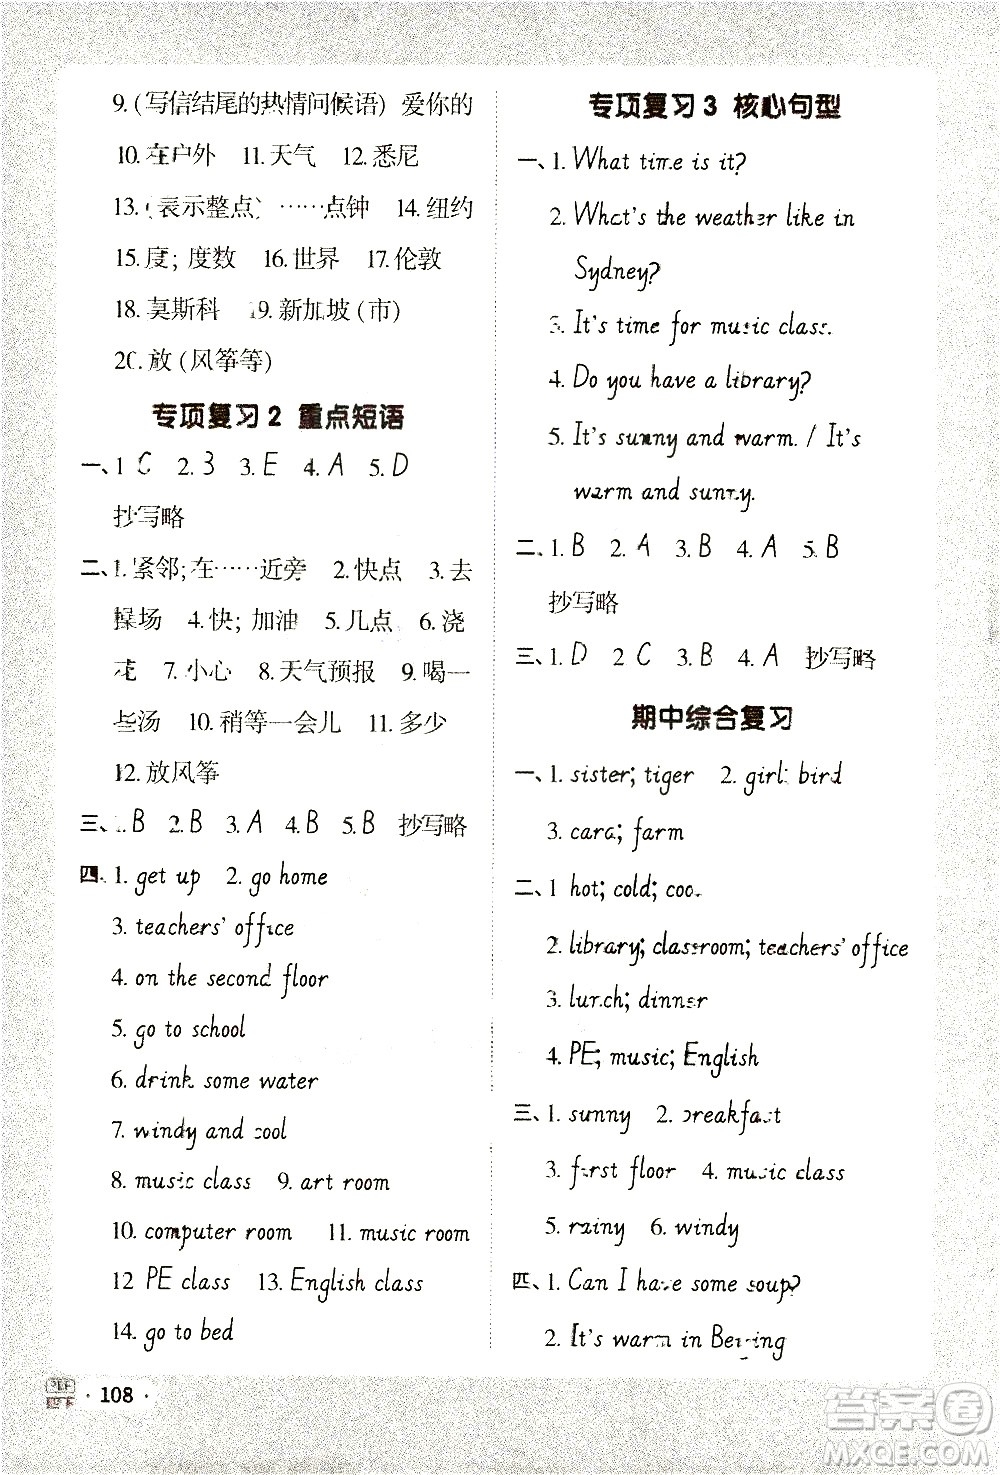 9. (写信结尾的热情问候语) 爱你的
10. 在户外 11. 天气 12. 悉尼
13. (表示整点) ……点钟 14. 纽约
15. 度; 度数 16. 世界 17. 伦敦
18. 莫斯科 19. 新加坡 (市)
20. 放 (风筝等)
专项复习 2 重点短语
一、1. C 2. B 3. E 4. A 5. D
抄写略
二、1. 紧邻; 在……近旁 2. 快点 3. 去
操场 4. 快; 加油 5. 几点 6. 浇
花 7. 小心 8. 天气预报 9. 喝一
些汤 10. 稍等一会儿 11. 多少
12. 放风筝
三、1. B 2. B 3. A 4. B 5. B 抄写略
四、1. get up 2. go home
3. teachers' office
4. on the second floor
5. go to school
6. drink some water
7. windy and cool
8. music class 9. art room
10. computer room 11. music room
12. PE class 13. English class
14. go to bed
· 108 ·
专项复习 3 核心句型
一、1. What time is it?
2. What's the weather like in
Sydney?
3. It's time for music class.
4. Do you have a library?
5. It's sunny and warm. / It's
warm and sunny.
二、1. B 2. A 3. B 4. A 5. B
抄写略
三、1. D 2. C 3. B 4. A 抄写略
期中综合复习
一、1. sister; tiger 2. girl; bird
3. card; farm
二、1. hot; cold; cool
2. library; classroom; teachers' office
3. lunch; dinner
4. PE; music; English
三、1. sunny 2. breakfast
3. first floor 4. music class
5. rainy 6. windy
四、1. Can I have some soup?
2. It's warm in Beijing
答案圈
MXQE.COM